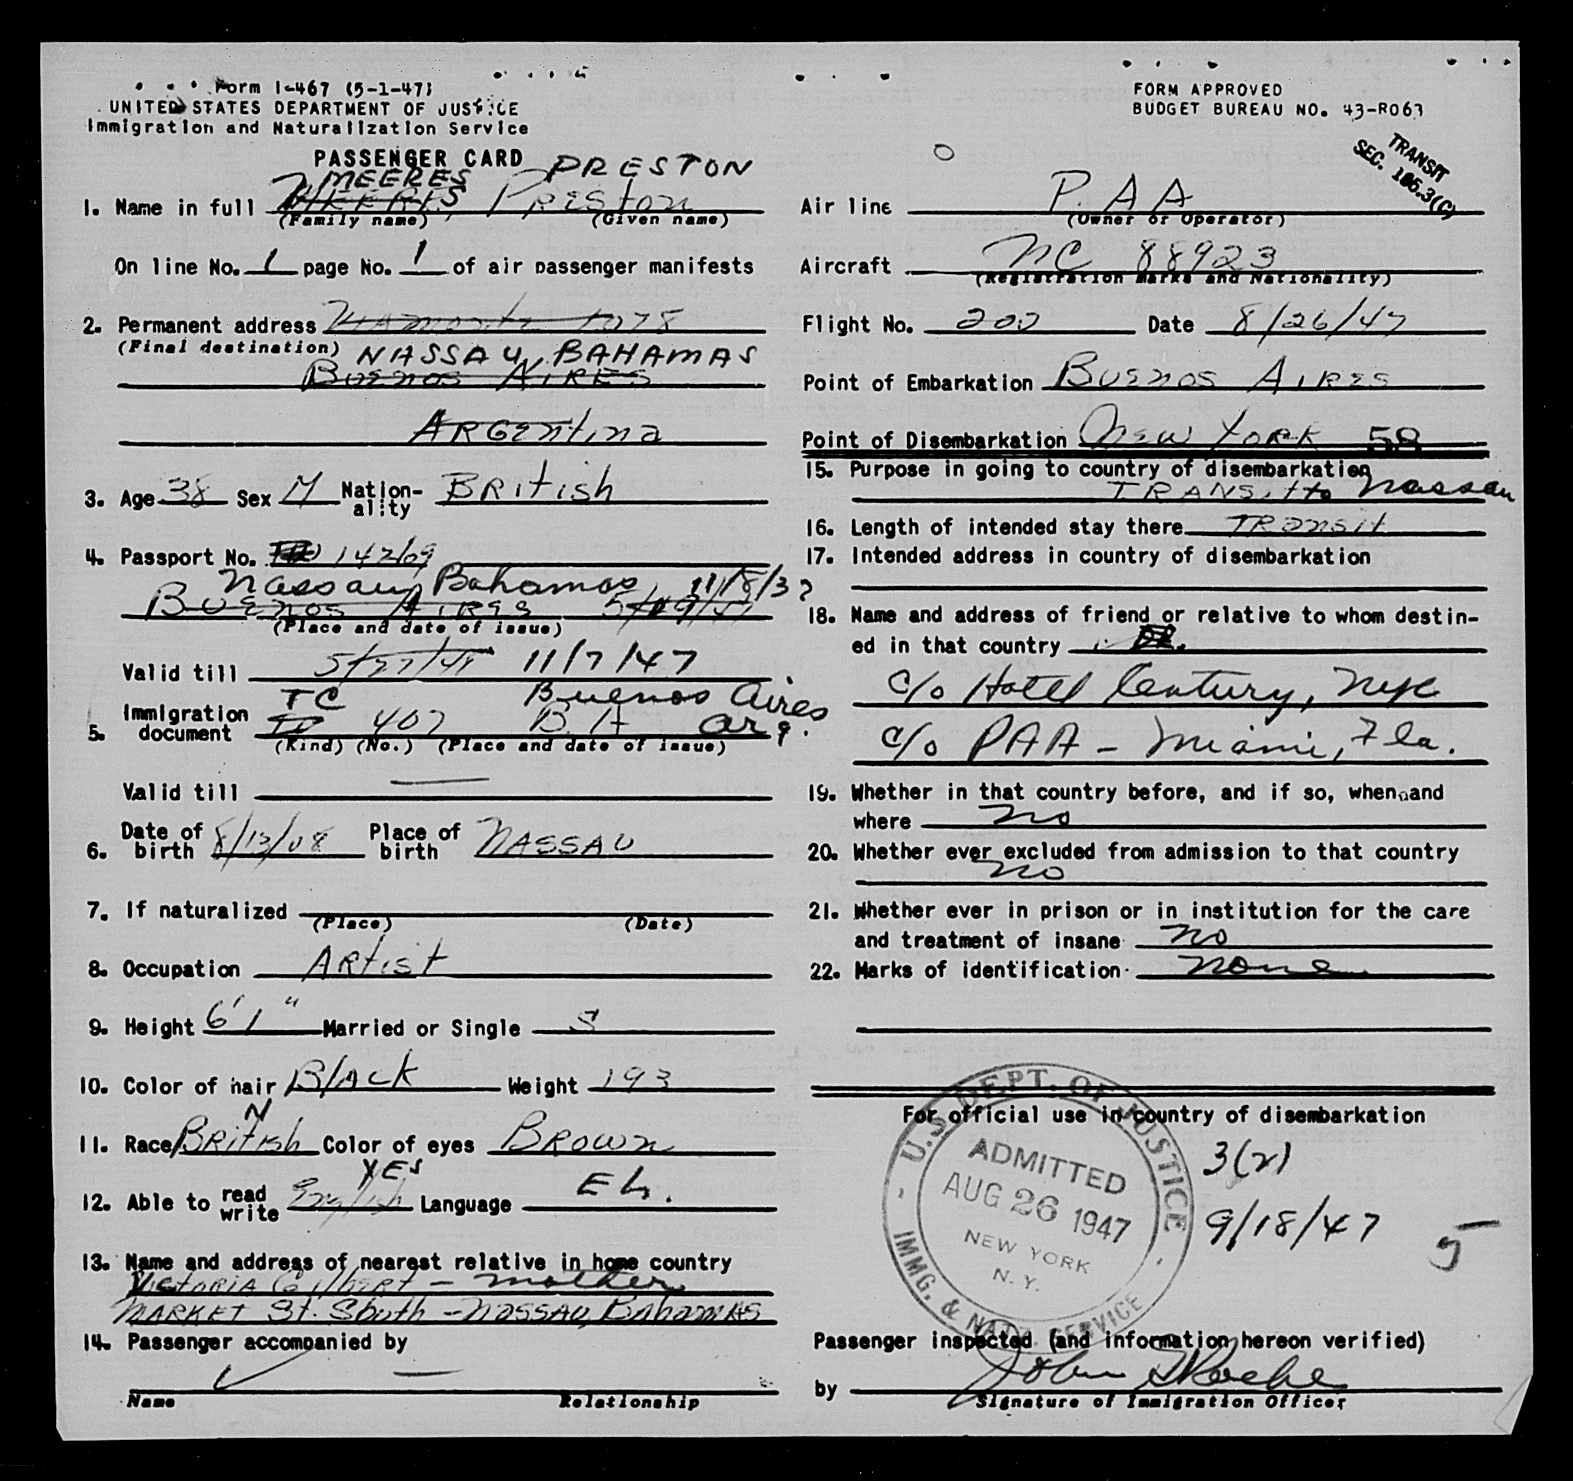 Form I-467 (5-1-47)
UNITED STATES DEPARTMENT OF JUSTICE
Immigration and Naturalization Service
PASSENGER CARD
MEERES PRESTON
1. Name in full MEERES, PRESTON
(Family name) (Given name)
On line No. 1 page No. 1 of air passenger manifests
2. Permanent address 1078
(Final destination) NASSAU, BAHAMAS
BUENOS AIRES
ARGENTINA
3. Age 38 Sex M Nation-ality BRITISH
4. Passport No. 14269
Nassau, Bahamas 11/8/37
BUENOS AIRES
(Place and date of issue)
Valid till 11/7/47
TC Buenos Aires
5. Immigration document 407 B.A Arg.
(Kind) (No.) (Place and date of issue)
Valid till —
6. Date of birth 8/13/08 Place of birth NASSAU
7. If naturalized
(Place) (Date)
8. Occupation ARTIST
9. Height 6'1" Married or Single S
10. Color of hair BLACK Weight 193
N
11. Race BRITISH Color of eyes BROWN
YES
12. Able to read write English Language Eh.
13. Name and address of nearest relative in home country
VICTORIA Gilbert - mother
MARKET St. South - NASSAU, BAHAMAS
14. Passenger accompanied by
—
Name Relationship
FORM APPROVED
BUDGET BUREAU NO. 43-R063
TRANSIT
SEC. 105.3(C)
Air line P.AA
(Owner or Operator)
Aircraft NC 88923
(Registration marks and Nationality)
Flight No. 202 Date 8/26/47
Point of Embarkation BUENOS AIRES
Point of Disembarkation NEW YORK 58
15. Purpose in going to country of disembarkation
TRANSIT to Nassau
16. Length of intended stay there TRANSIT
17. Intended address in country of disembarkation
18. Name and address of friend or relative to whom destin-
ed in that country
c/o Hotel Century, NYC
c/o PAA - Miami, Fla.
19. Whether in that country before, and if so, when and
where no
20. Whether ever excluded from admission to that country
no
21. Whether ever in prison or in institution for the care
and treatment of insane no
22. Marks of identification none
For official use in country of disembarkation
U.S. DEPT. OF JUSTICE
ADMITTED
AUG 26 1947
NEW YORK
N.Y.
IMMG. & NATZ. SERVICE
3(2)
9/18/47
5
Passenger inspected (and information hereon verified)
by John Roche
Signature of Immigration Officer